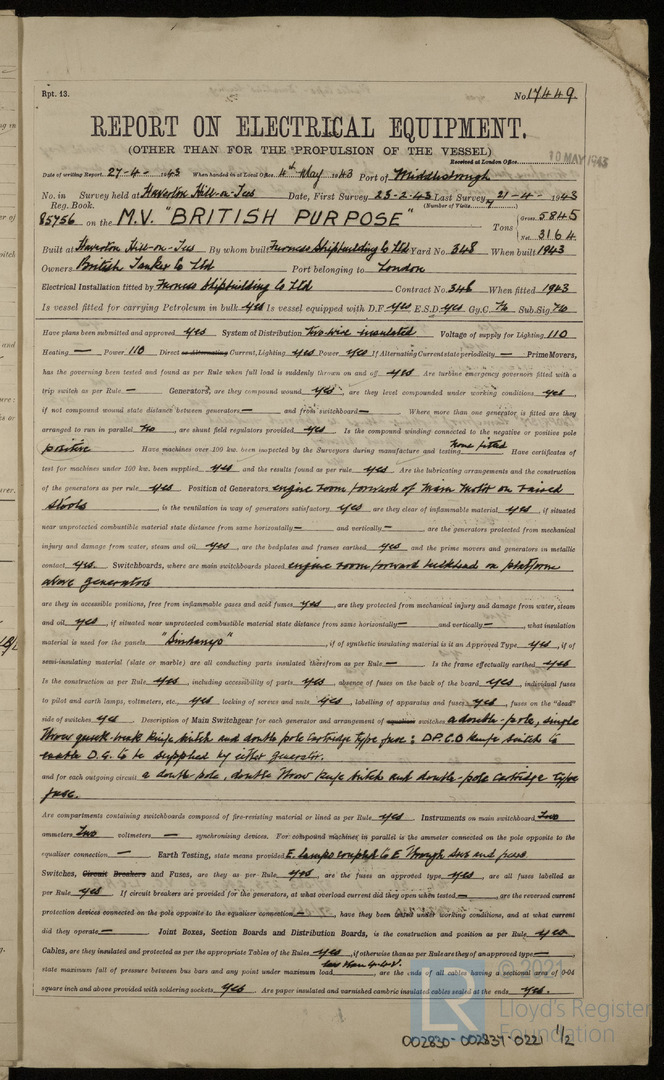 Rpt. 13.
No. 17449.
REPORT ON ELECTRICAL EQUIPMENT.
(OTHER THAN FOR THE PROPULSION OF THE VESSEL)
Received at London Office 10 MAY 1943
Date of writing Report 27-4- 1943 When handed in at Local Office 4th May 1943 Port of Middlesbrough
No. in Survey held at Haverton Hill-on-Tees Date, First Survey 23-2-43 Last Survey 21-4- 1943
Reg. Book. (Number of Visits
85756 on the M.V. "BRITISH PURPOSE" Tons Gross 5845
Net 3164
Built at Haverton Hill-on-Tees By whom built Furness Shipbuilding Co Ltd Yard No. 348 When built 1943
Owners British Tanker Co Ltd Port belonging to London
Electrical Installation fitted by Furness Shipbuilding Co Ltd Contract No. 348 When fitted 1943
Is vessel fitted for carrying Petroleum in bulk yes Is vessel equipped with D.F. yes E.S.D. yes Gy.C. No Sub.Sig. No
Have plans been submitted and approved yes System of Distribution two wire insulated Voltage of supply for Lighting 110
Heating — Power 110 Direct or Alternating Current, Lighting yes Power yes If Alternating Current state periodicity — Prime Movers,
has the governing been tested and found as per Rule when full load is suddenly thrown on and off yes Are turbine emergency governors fitted with a
trip switch as per Rule — Generators, are they compound wound yes, are they level compounded under working conditions yes,
if not compound wound state distance between generators — and from switchboard — Where more than one generator is fitted are they
arranged to run in parallel No, are shunt field regulators provided yes Is the compound winding connected to the negative or positive pole
positive Have machines over 100 kw. been inspected by the Surveyors during manufacture and testing None fitted Have certificates of
test for machines under 100 kw. been supplied yes and the results found as per rule yes Are the lubricating arrangements and the construction
of the generators as per rule yes Position of Generators engine room forward of main motor on raised
stools, is the ventilation in way of generators satisfactory yes are they clear of inflammable material yes, if situated
near unprotected combustible material state distance from same horizontally — and vertically —, are the generators protected from mechanical
injury and damage from water, steam and oil yes, are the bedplates and frames earthed yes and the prime movers and generators in metallic
contact yes Switchboards, where are main switchboards placed engine room forward bulkhead on platform
above generators
are they in accessible positions, free from inflammable gases and acid fumes yes, are they protected from mechanical injury and damage from water, steam
and oil yes, if situated near unprotected combustible material state distance from same horizontally — and vertically —, what insulation
material is used for the panels "Sindanyo", if of synthetic insulating material is it an Approved Type yes, if of
semi-insulating material (slate or marble) are all conducting parts insulated therefrom as per Rule — Is the frame effectually earthed yes
Is the construction as per Rule yes, including accessibility of parts yes, absence of fuses on the back of the board yes, individual fuses
to pilot and earth lamps, voltmeters, etc., yes locking of screws and nuts yes, labelling of apparatus and fuses yes, fuses on the "dead"
side of switches yes Description of Main Switchgear for each generator and arrangement of equaliser switches a double-pole, single
throw quick break knife switch and double pole cartridge type fuse; D.P.C.O knife switch to
enable D.G. to be supplied by either generator.
and for each outgoing circuit a double-pole, double throw knife switch and double-pole cartridge type
fuse.
Are compartments containing switchboards composed of fire-resisting material or lined as per Rule yes Instruments on main switchboard Two
ammeters Two voltmeters — synchronising devices. For compound machines in parallel is the ammeter connected on the pole opposite to the
equaliser connection — Earth Testing, state means provided E. lamps coupled to E through sws and fuses
Switches, Circuit Breakers and Fuses, are they as per Rule yes, are the fuses an approved type yes, are all fuses labelled as
per Rule yes If circuit breakers are provided for the generators, at what overload current did they open when tested —, are the reversed current
protection devices connected on the pole opposite to the equaliser connection —, have they been tested under working conditions, and at what current
did they operate — Joint Boxes, Section Boards and Distribution Boards, is the construction and position as per Rule yes
Cables, are they insulated and protected as per the appropriate Tables of the Rules yes, if otherwise than as per Rule are they of an approved type —,
state maximum fall of pressure between bus bars and any point under maximum load less than, are the ends of all cables having a sectional area of 0·04
square inch and above provided with soldering sockets yes Are paper insulated and varnished cambric insulated cables sealed at the ends yes.
© 2021
LR
Lloyd's Register
Foundation
002830-002837-0221 1/2